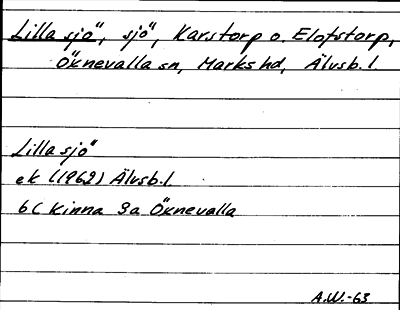 Lilla sjö, sjö, Karstorp o. Elofstorp,
Öxnevalla sn, Marks hd, Älvsb. l.
Lilla sjö
ek (1962) Älvsb.l.
6C Kinna 9a Öxnevalla
A.W.-63